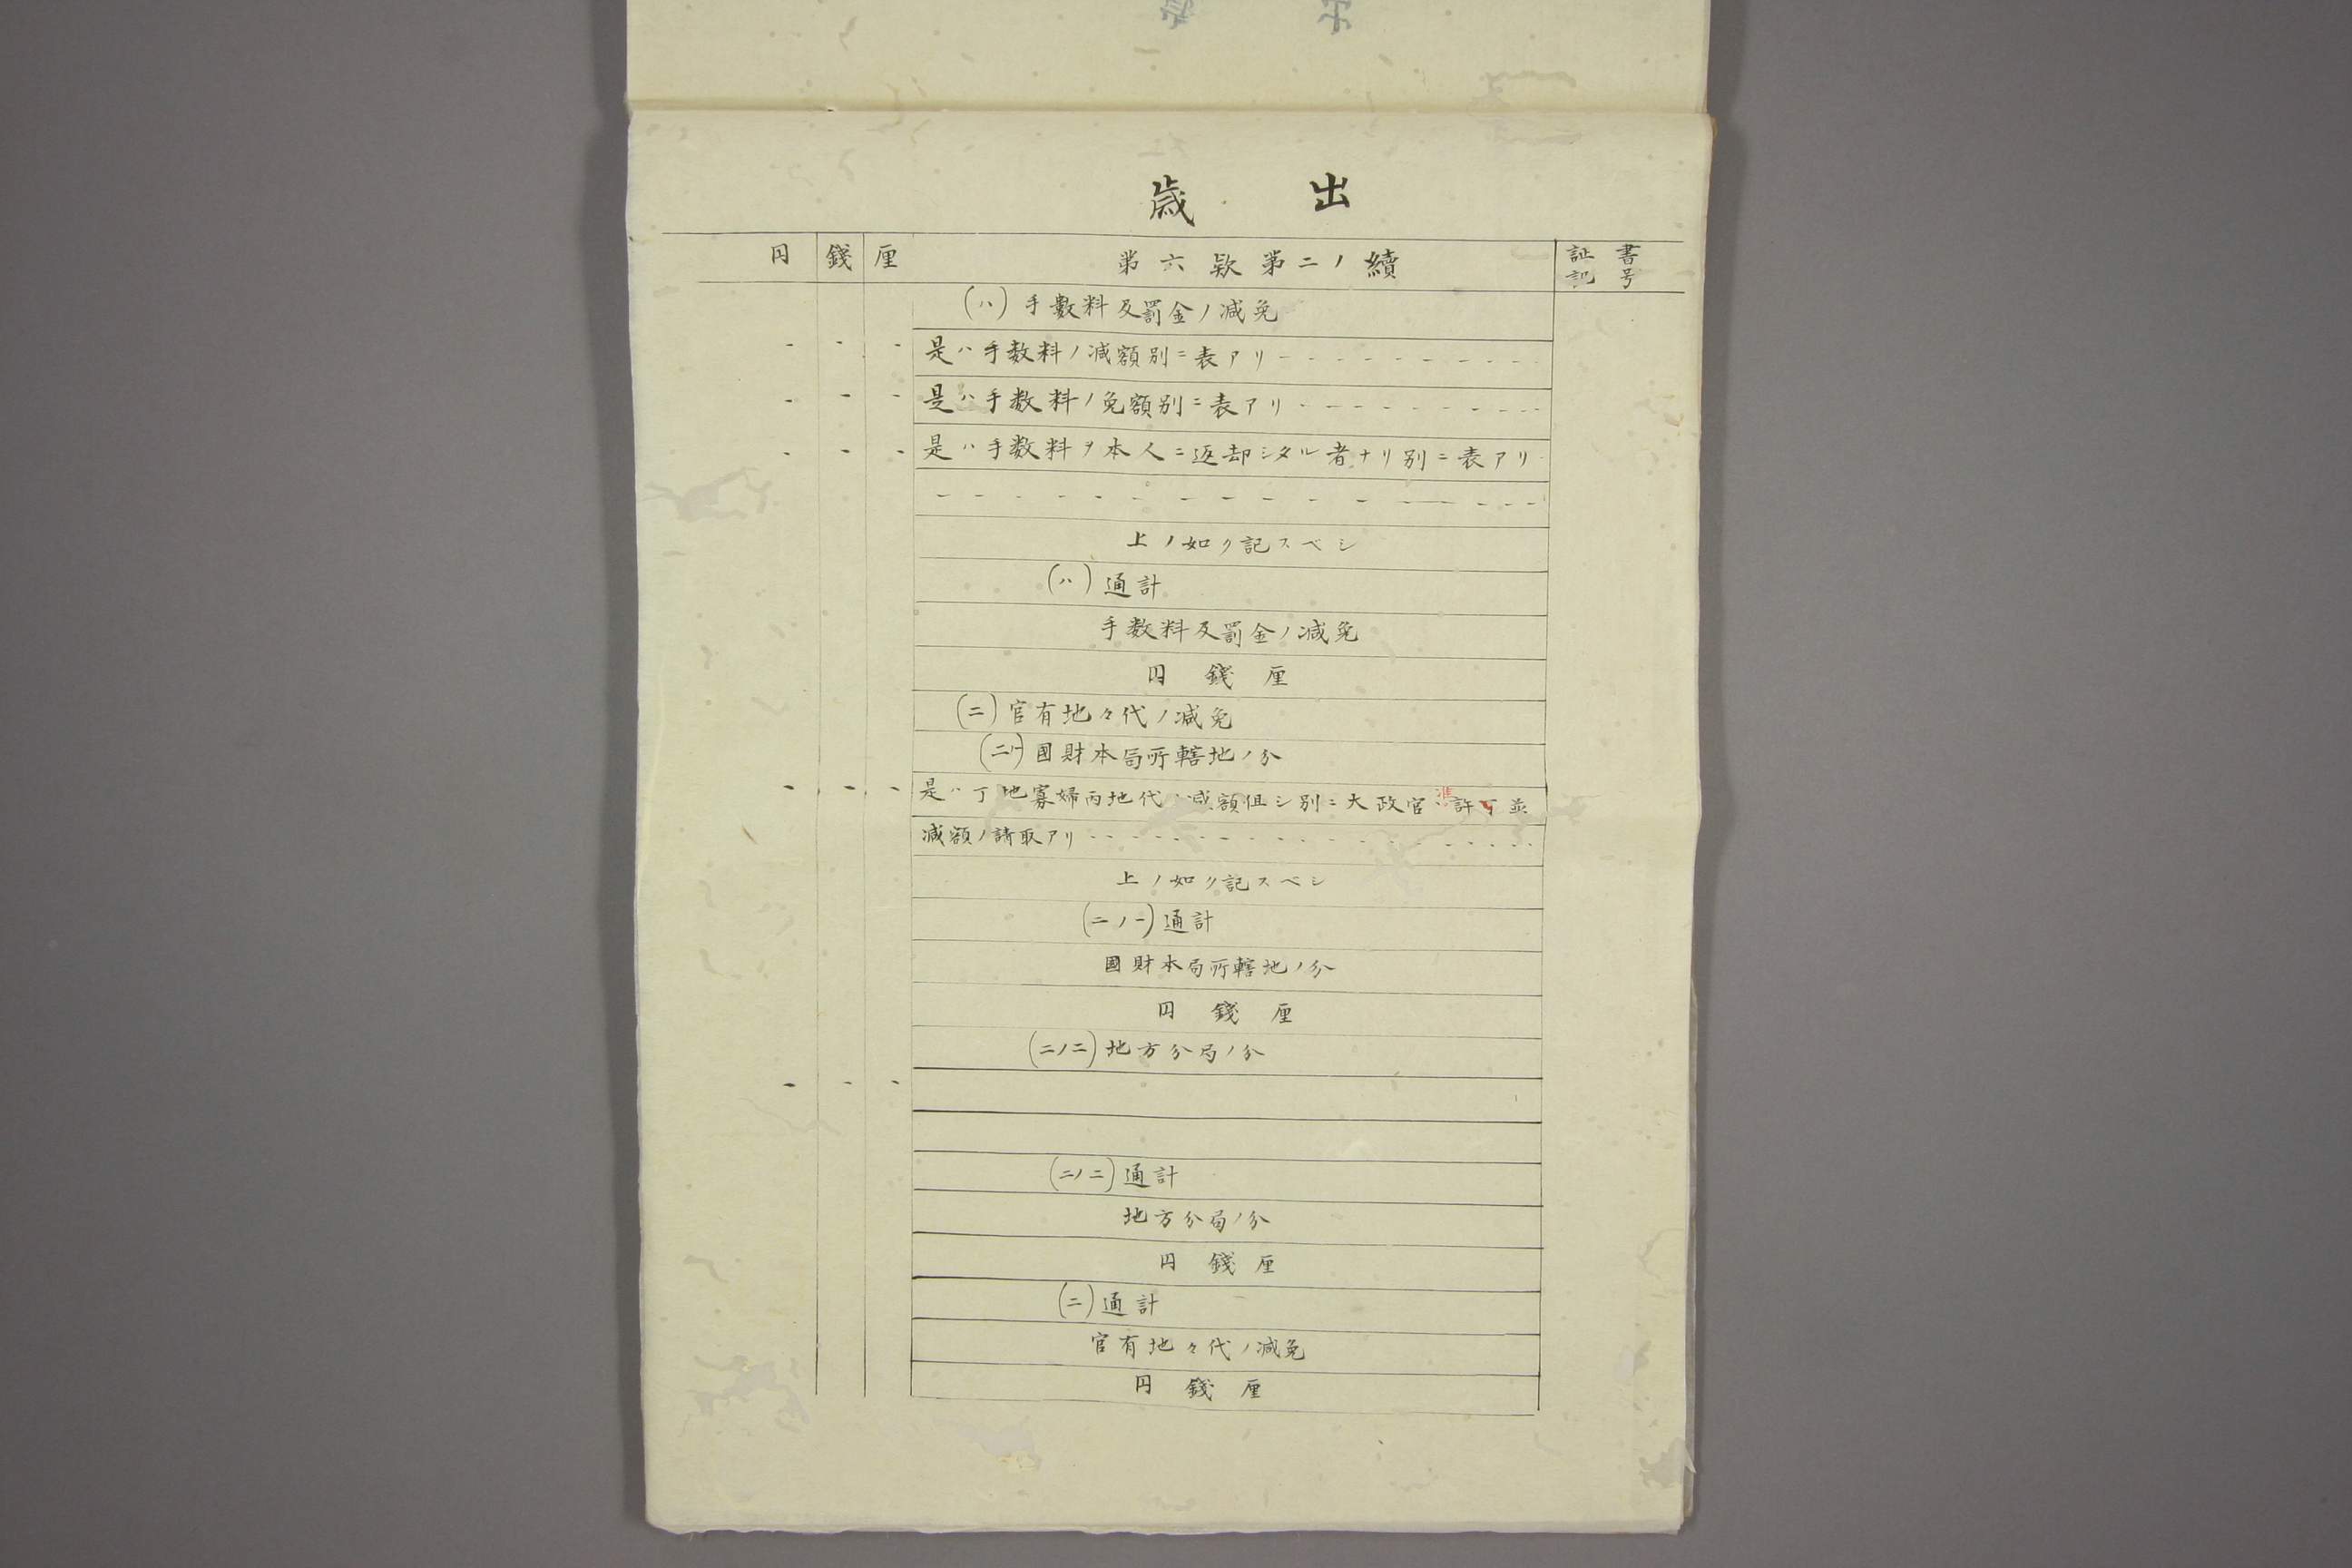 歳出
円 錢 厘 第六欵第二ノ續 証書記号
(ハ)手數料及罰金ノ減免
是ハ手数料ノ減額別ニ表アリ
是ハ手数料ノ免額別ニ表アリ
是ハ手数料ヲ本人ニ返却シタル者ナリ別ニ表アリ
上ノ如ク記スベシ
(ハ)通計
手数料及罰金ノ減免
円 錢 厘
(ニ)官有地々代ノ減免
(ニノ一)國財本局所轄地ノ分
是ハ丁地寡婦丙地代ノ減額但シ別ニ大政官准許並
減額ノ請取アリ
上ノ如ク記スベシ
(ニノ一)通計
國財本局所轄地ノ分
円 錢 厘
(ニノ二)地方分局ノ分
(ニノ二)通計
地方分局ノ分
円 錢 厘
(ニ)通計
官有地々代ノ減免
円 錢 厘